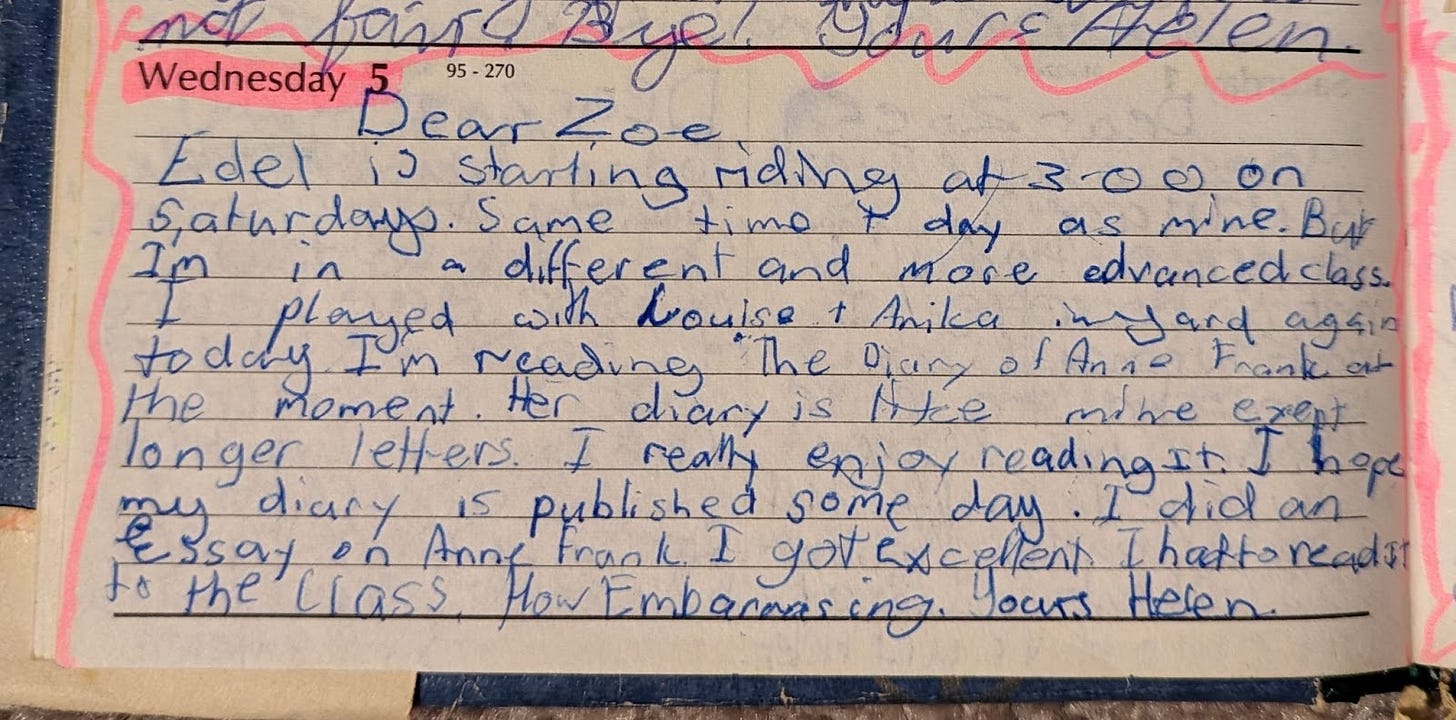 not fair! Bye! Yours Helen.
Wednesday 5 95 - 270
Dear Zoe
Edel is starting riding at 3-00 on
Saturdays. Same time + day as mine. But
Im in a different and more advanced class.
I played with Louise + Anika in yard again
today. I'm reading "The Diary of Anne Frank at
the moment. Her diary is like mine exept
longer letters. I really enjoy reading it. I hope
my diary is published some day. I did an
Essay on Anne Frank. I got excellent. I hat to read it
to the Class. How Embarrassing. Yours Helen.